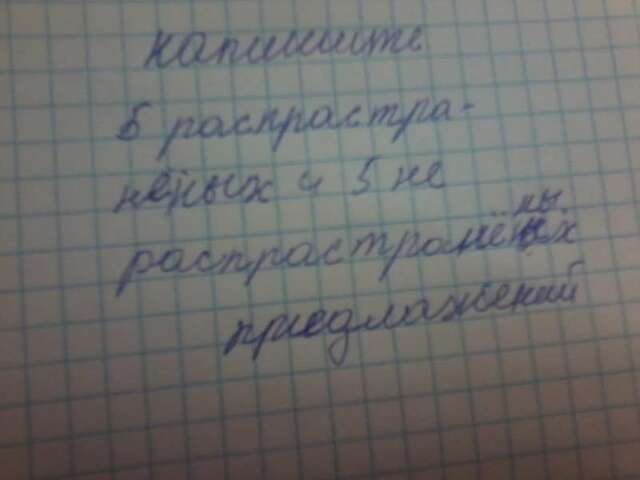 напишите
5 распрастра-
нёных и 5 не
распрастранённых
предлажений